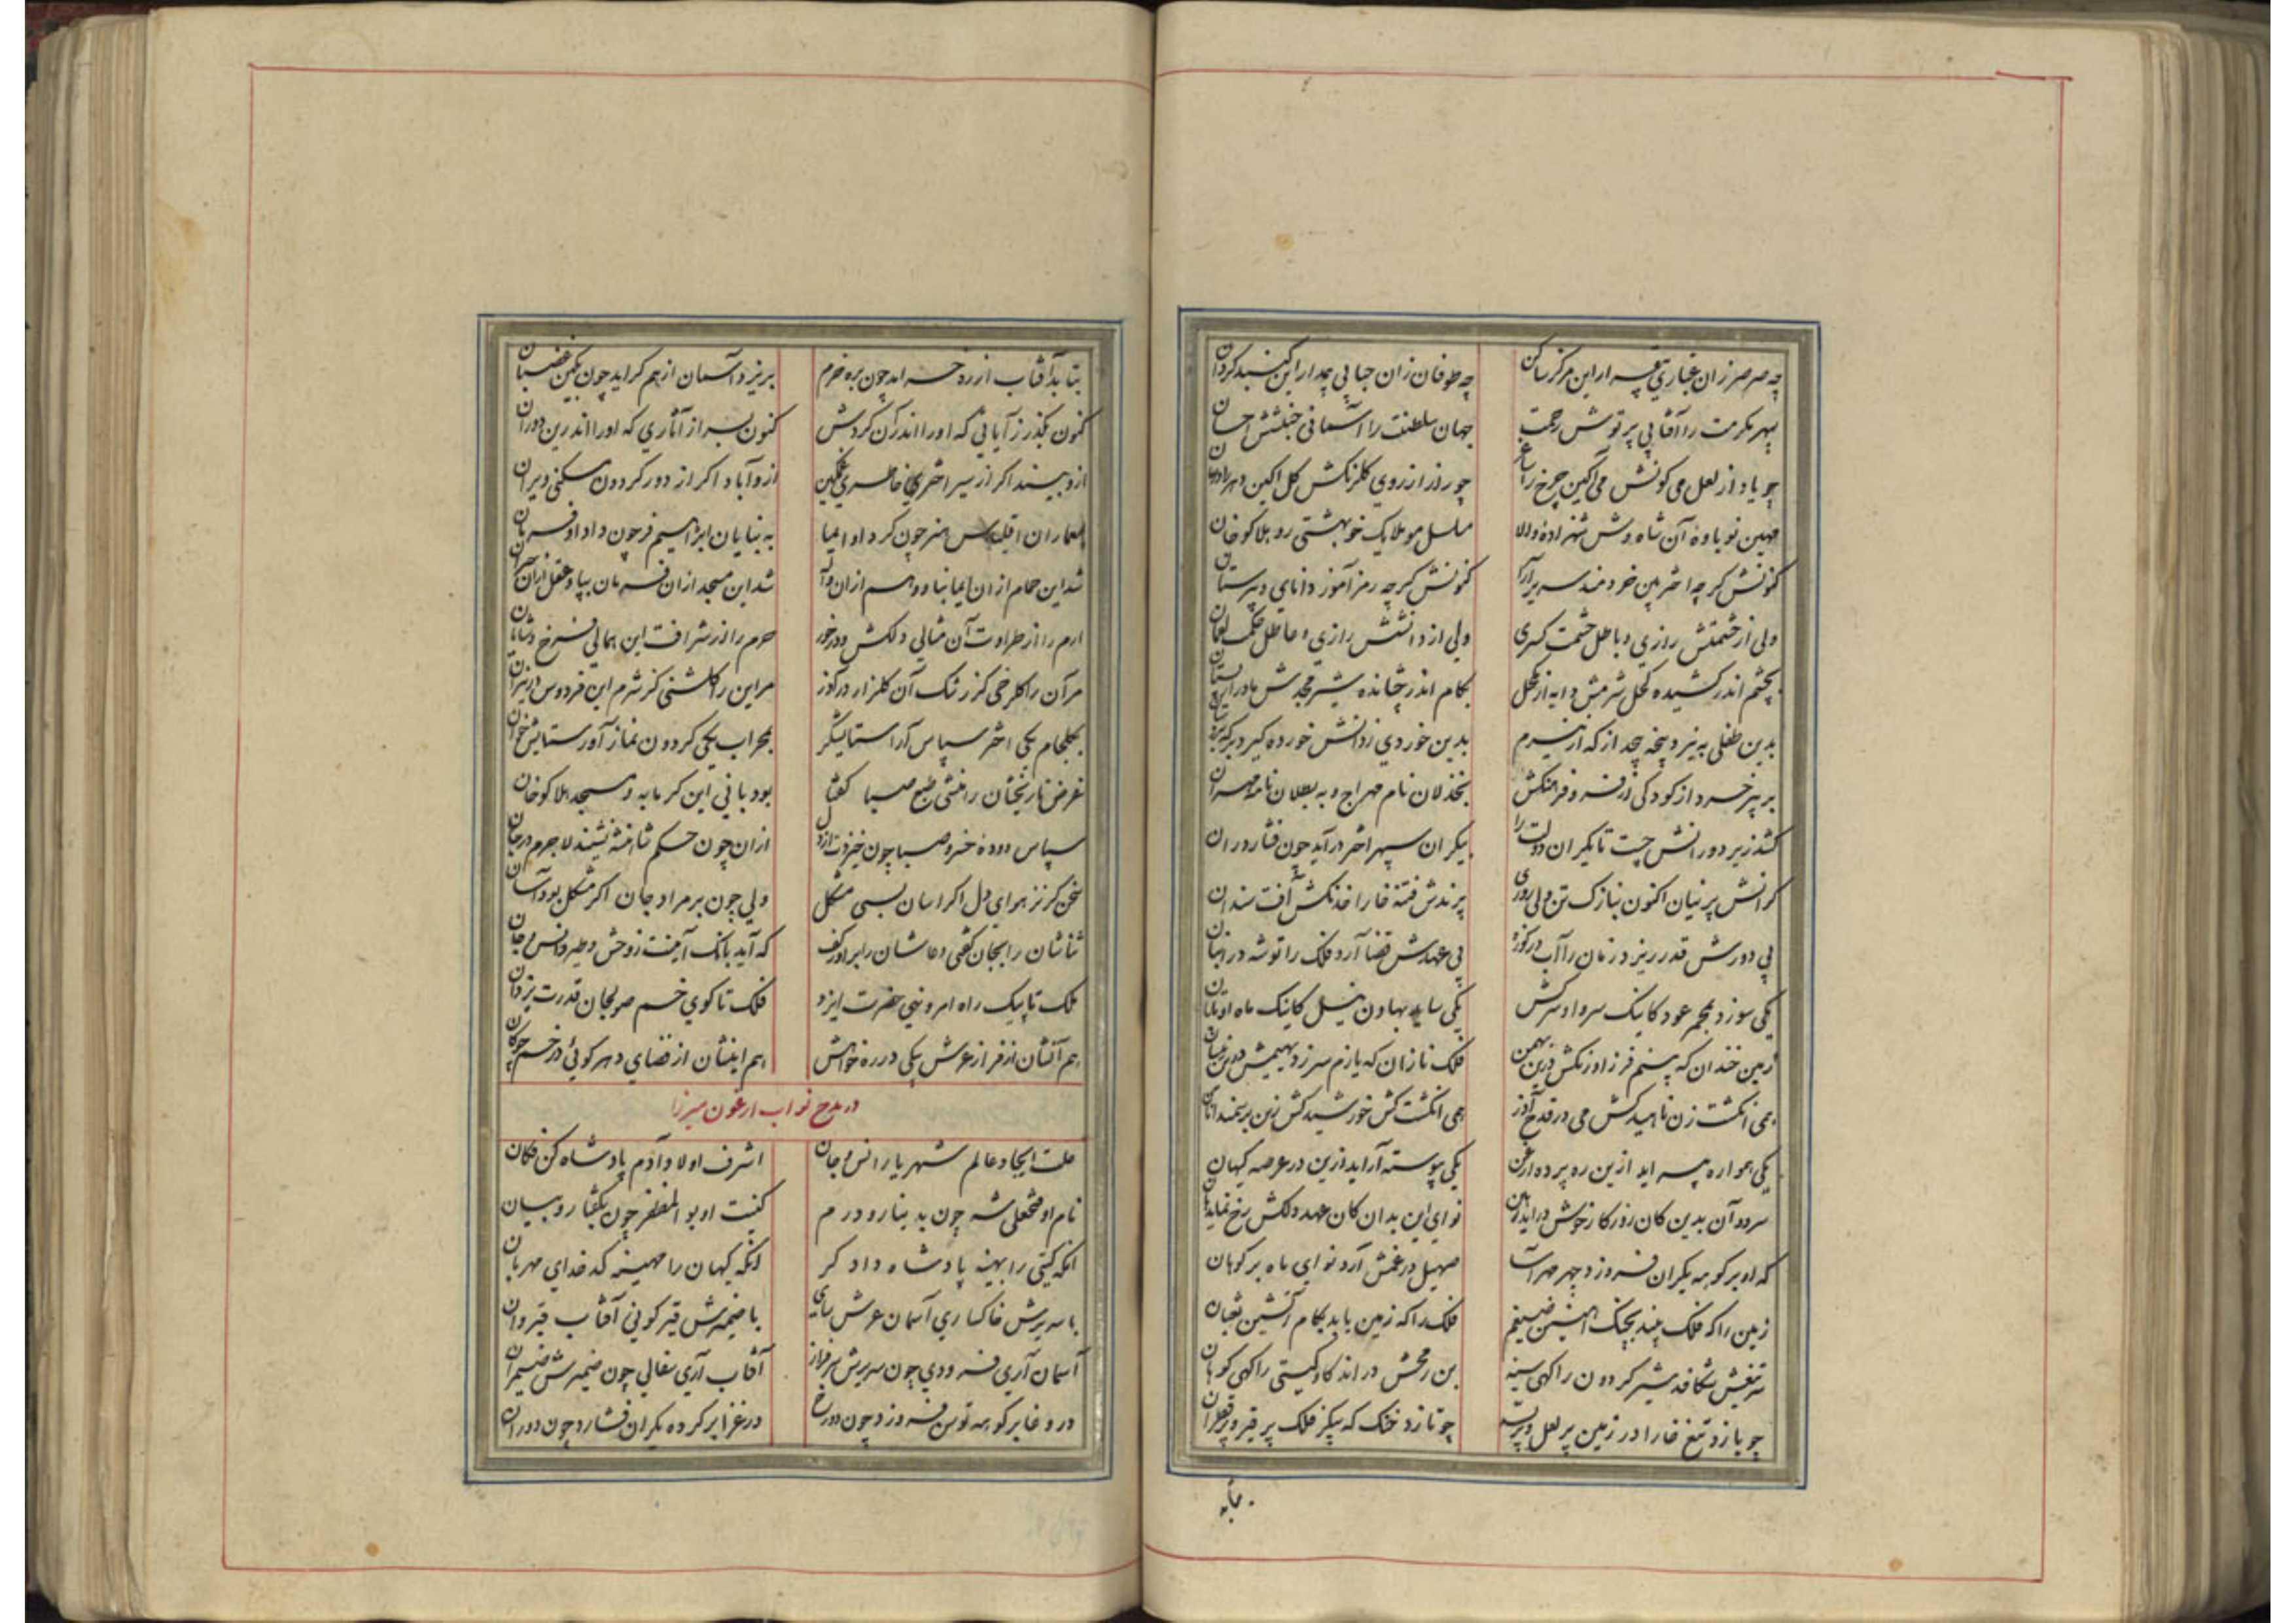 چه صرصر زان غباری بقعه ار این مرکز ساکن چه طوفان زان حبابی پیدار این کنبد کردان
سپهر مکرمت را آفتابی پرتوش رحمت جهان سلطنت را آسمانی جنبشش احسان
چو یاد از لعل می کونش می آکین چرخ را ساغر چو راز از روی کلرنکش کل اکین دهر را دامان
مهین نوباوهٔ آن شاه وش شهزادهٔ والا سلسل مو ملایک خو بهشتی رو هلاکو خان
کنونش کر چه اختر بین خردمند سریر آرا کنونش کر چه رمز آموز دانای دبیرستان
ولی از حشمتش رازی و باطل حشمت کسری ولی از دانشش رازی و عاطل حکمت لقمان
بچشم اندر کشیده کحل شرمش دایه از مکحل بکام اندر چشانده شیر مجدش مادر از پستان
بدین طفلی به نیرو پنجه پیچد از که از نیرم بدین خوردی ز دانش خورده کیرد بر که بر
بر پیر خرد از کودکی در فر و فرهنکش بخذلان نام مهراج و به بطلان نامه
کشد زیر دو رانش چست تا یکران دولت را بیکران سپهر اختر در آید چون فشارد ران
کرانش پرنیان اکنون بنازک تن ولی روزی پرندش فتنه خارا خدنکش آفت سندان
پی دورش قدر ریزد زمان را آب در کوزه پی عهدش قضا آرد فلک را توشه در انبان
یکی سوزد بمجمر عود کاینک سرو او سرکش یکی ساید بهاون نیل کاینک ماه او تابان
زمین خندان که پسندم فر ز اورنکش درین بهمن فلک نازان که یازم سر ز دیهیمش درین نیسان
همی انکشت زن ناهید کش می در قدح آذر همی انکشت کش خورشید کش زین بر سمند آبان
یکی همواره پیراید ازین ره پرده ارغن یکی پیوسته آراید ازین در عرصه کیهان
سرود آن بدین کان روزکار خوش در آید نوای این بدان کان عهد دلکش رخ نماید هان
که او بر کوهه یکران فروزد چهر مهر آسا صهیل درغمش آرد نوای ماه بر کوهان
زمین را که فلک بیند بچنک آهنین ضیغم فلک را که زمین یابد بکام آتشین ثعبان
سر تیغش شکافد شیر کردون را کهی سینه بن رمحش دراند کاو کیتی را کهی کوهان
چو یازد تیغ خارا در زمین پر لعل و پر بسد چو تازد خنک که پیکر فلک پر قیر و پر قطران
بتابد
بتابد آفتاب از رد خسرامد چون بره خرم بریزد آسمان از هم کراید چون بکین غضبان
کنون بکذر ز آیاتی که او را اندران کردش کنون بسرا ز آثاری که او را اندرین دوران
ازو بیند اکر از سیر اختر خاطری غمکین ازو آباد اکر از دور کردون مسکنی ویران
بمعماران اقلیدس هنر چون کرد او ایما به بنایان ابراهیم فر چون داد او فرمان
شد این حمام از ان ایما بنا و وهم ازان واله شد این مسجد ازان فرمان بپا و عقل ازان حیران
ارم را از طراوت آن مثالی دلکش و درخور حرم را از شرافت این همالی فرخ و شایان
مر آن را کلرخی کز رشک آن کلزار در آذر مر این را کلشنی کز شرم این فردوس در نیران
بکلجام یکی اختر سپاس آرا ستایشکر بمحراب یکی کردون نماز آور ستایش خوان
غرض تاریخشان را منشی طبع صبا کفتا بود بانی این کرمابه و مسجد هلاکو خان
سپاس دودهٔ خسرو صبا چون خیزدت از دل ازان چون حسکم نشینند لاجرم در جان
سخن کز نز هوای دل اکر اسان بسی مشکل ولی چون بر مراد جان اکر مشکل بود آسان
ثناشان را بجان کفتی دعاشان را برآور کف که آید بانک آمینت ز وحش و طیر و انس و جان
ملک تا پیک راه امر و نهی حضرت ایزد فلک تا کوی خم صولجان قدرت یزدان
هم آنشان از فراز عرش پیکی در ره خواهش هم اینشان از فضای دهر کوئی در خم چوکان
در مدح نواب ارغون میرزا
علت ایجاد عالم شهریار انس و جان اشرف اولاد آدم پادشاه کن فکان
نام او فتحعلی شه چون به دینار و درم کنیت او بو المظفر چون بکفتار و بیان
آنکه کیتی را بهینه پادشاه دادکر آنکه کیهان را مهینه کدخدای مهربان
با سریرش خاکساری آسمان عرش سای با ضمیرش قیر کونی آفتاب قیروان
آسمان آری فرودی چون سریرش سرفراز آفتاب آری سفالی چون ضمیرش ضیمران
در وغا بر کوهه توسن فروزد چون دو رخ در غزا بر کرده یکران فشارد چون دو ران